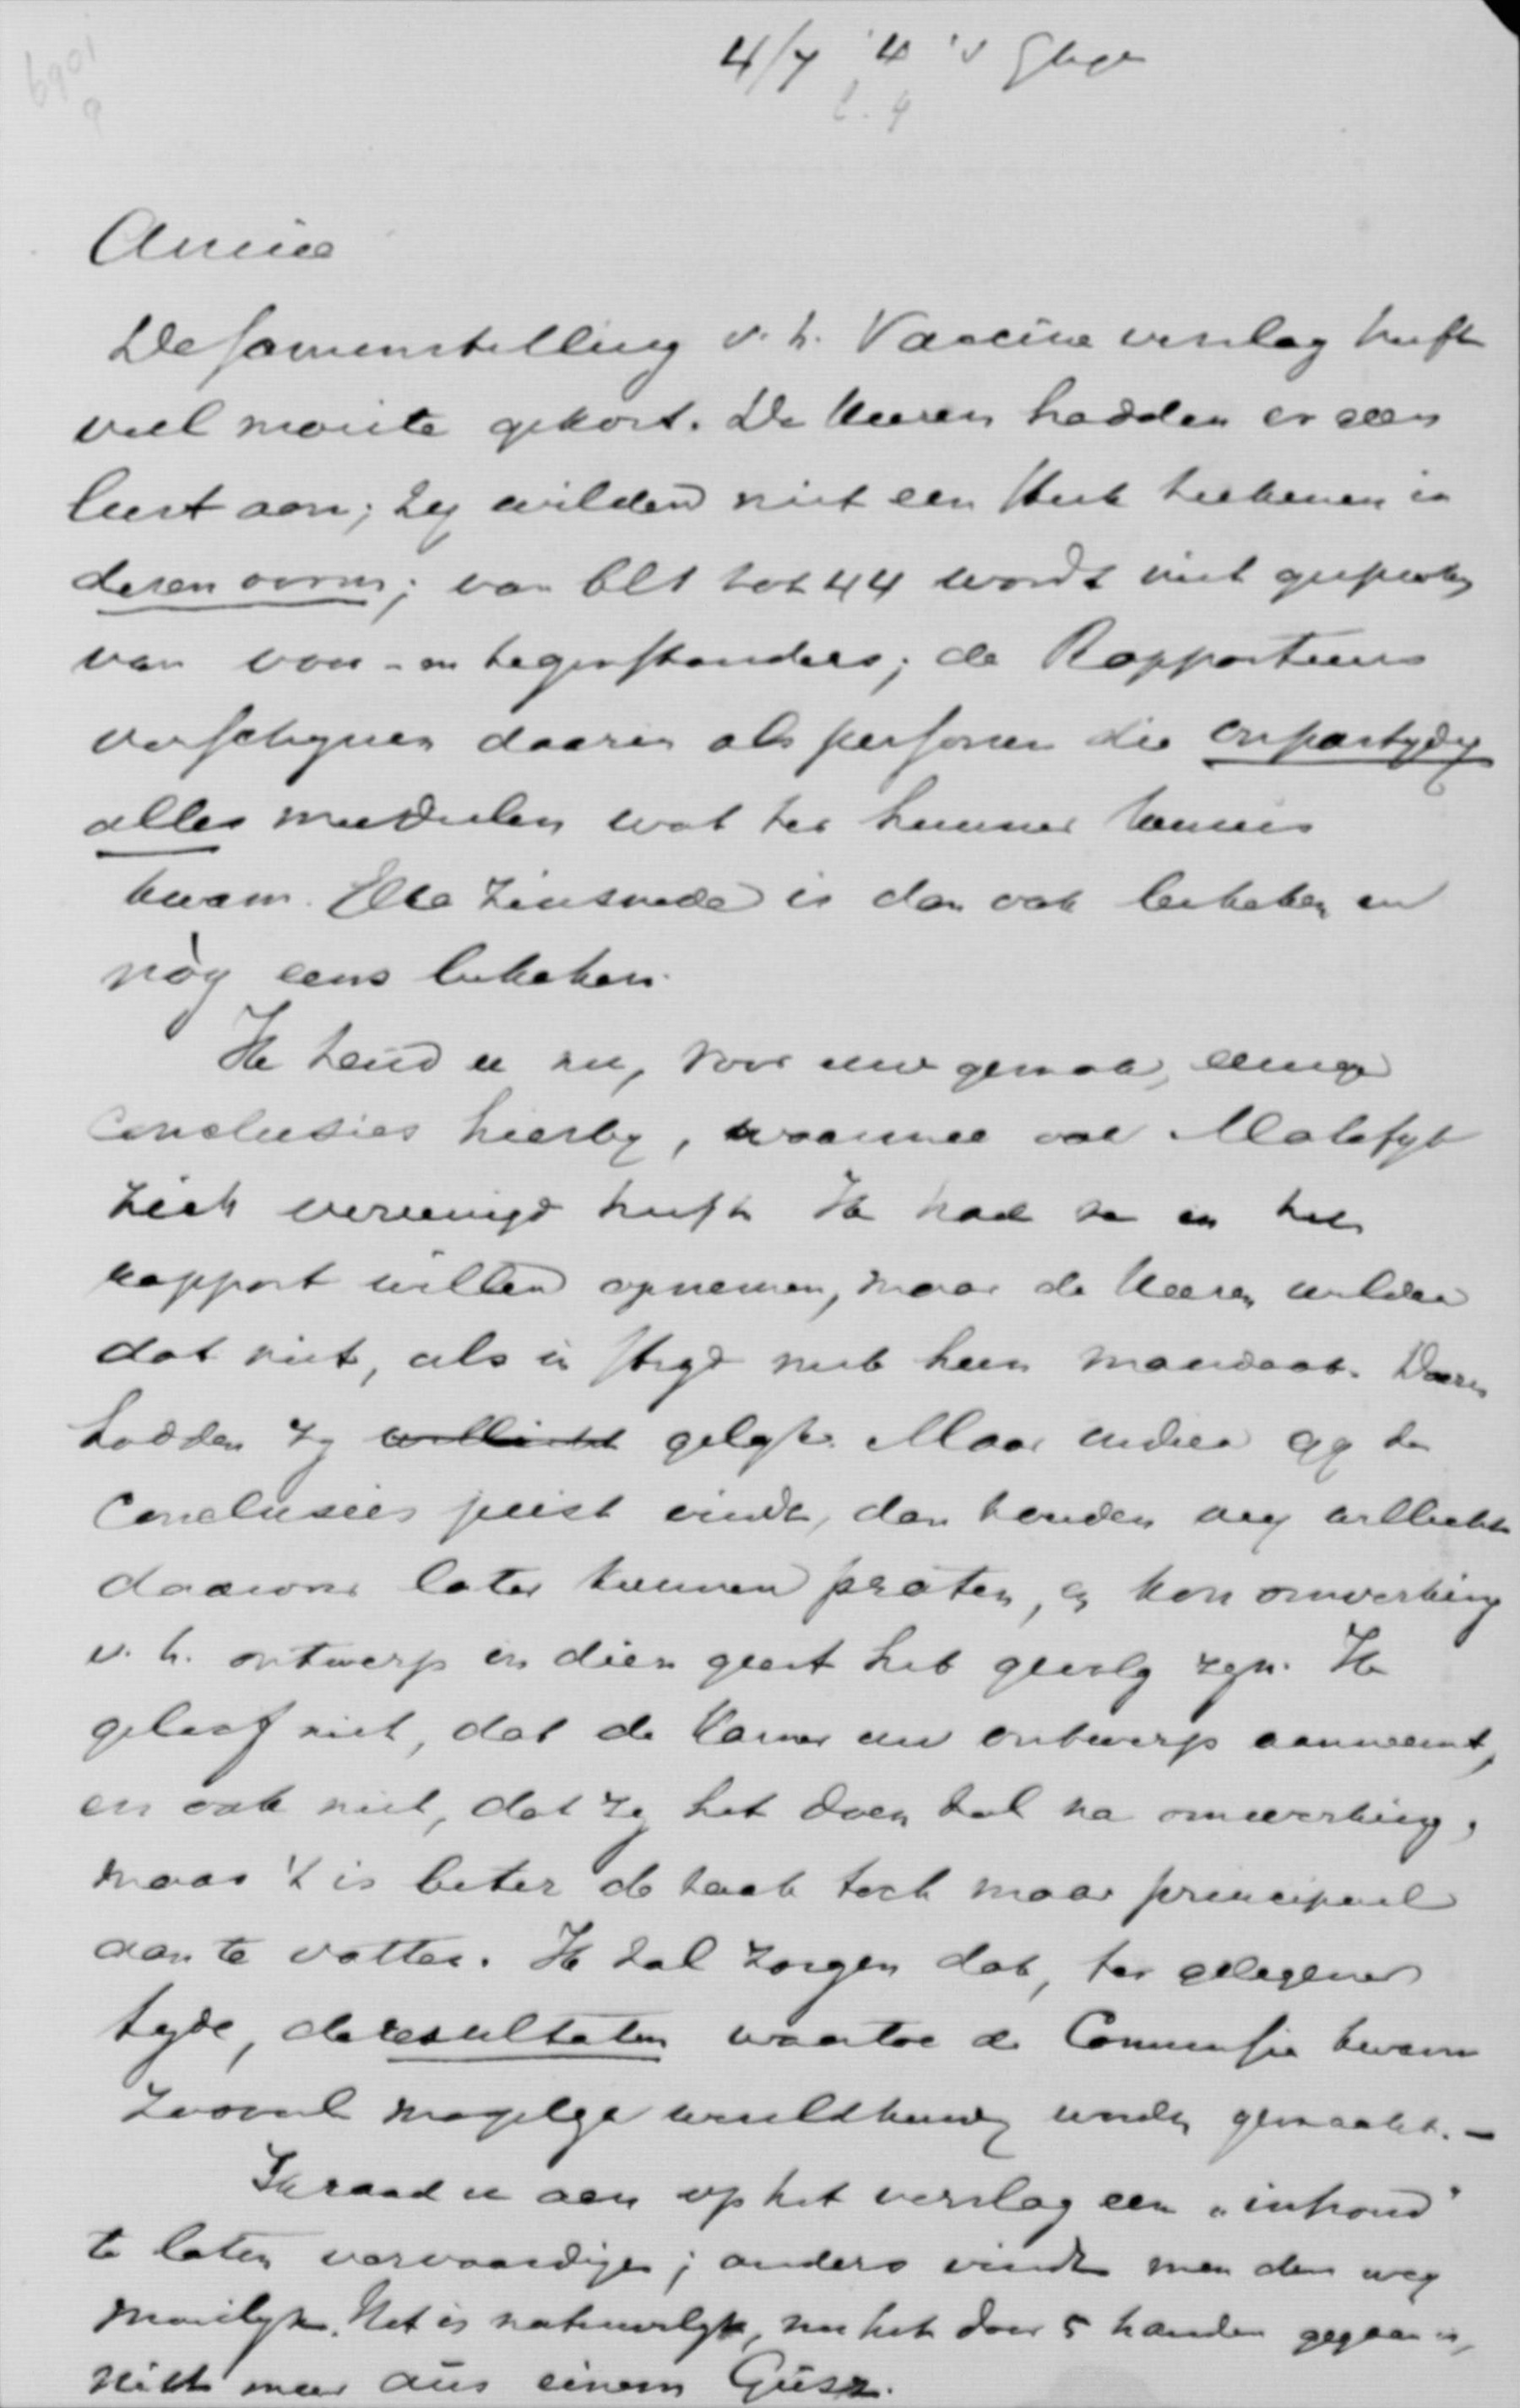 6901
9
4/7 '4 's Grage
Amice
De samenstelling v. h. Vaccine verslag heeft
veel moeite gekost. De heeren hadden er geen
lust aan; zij wilden niet een stuk teekenen in
deren vorm; van blz 1 tot 44 wordt niet gesproken
van voor- en tegenstanders; de Rapporteurs
verschijnen daarin als personen die onpartijdig
alles mededeelen wat ter hunner kennis
kwam. Elke zinsnede is dan ook bekeken en
nòg eens bekeken.
Ik zend u nu, voor uw gemak, eenige
conclusies hierbij, waarmee ook Malefijt
zich vereenigd heeft. Ik had ze in het
rapport willen opnemen, maar de heeren wilden
dat niet, als in strijd met hun mandaat. Daarin
hadden zij wellicht gelijk. Maar indien gij de
conclusies juist vindt, dan zouden wij wellicht
daarover later kunnen praten, en kon omwerking
v. h. ontwerp in dien geest het gevolg zijn. Ik
geloof niet, dat de Kamer uw ontwerp aanneemt,
en ook niet, dat zij het doen zal na omwerking,
maar 't is beter de zaak toch maar principieel
aan te vatten. Ik zal zorgen dat, ter gelegener
tijde, de resultaten waartoe de Commissie kwam
zooveel mogelijk wereldkundig worden gemaakt. –
Ik raad u aan op het verslag een „inhoud"
te laten vervaardigen; anders vindt men den weg
moeilijk. Het is natuurlijk, nu het door 5 handen gegaan is,
niet meer aus einem Gusz.